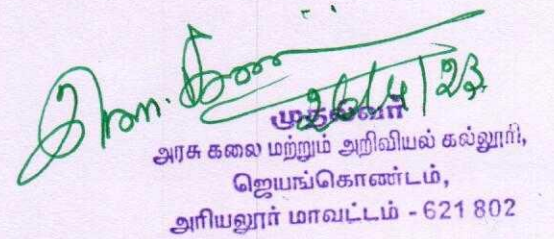 26/4/23
முதல்வர்
அரசு கலை மற்றும் அறிவியல் கல்லூரி,
ஜெயங்கொண்டம்,
அரியலூர் மாவட்டம் - 621 802